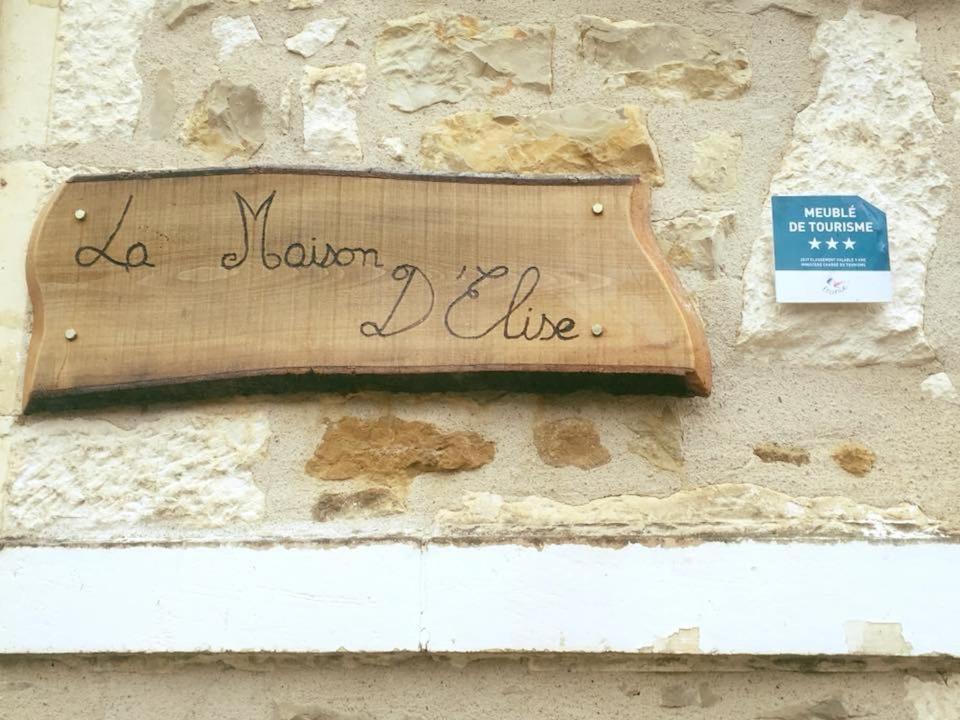 La Maison
D'Elise
MEUBLÉ
DE TOURISME
2017 CLASSEMENT VALABLE 5 ANS
MINISTÈRE CHARGÉ DU TOURISME